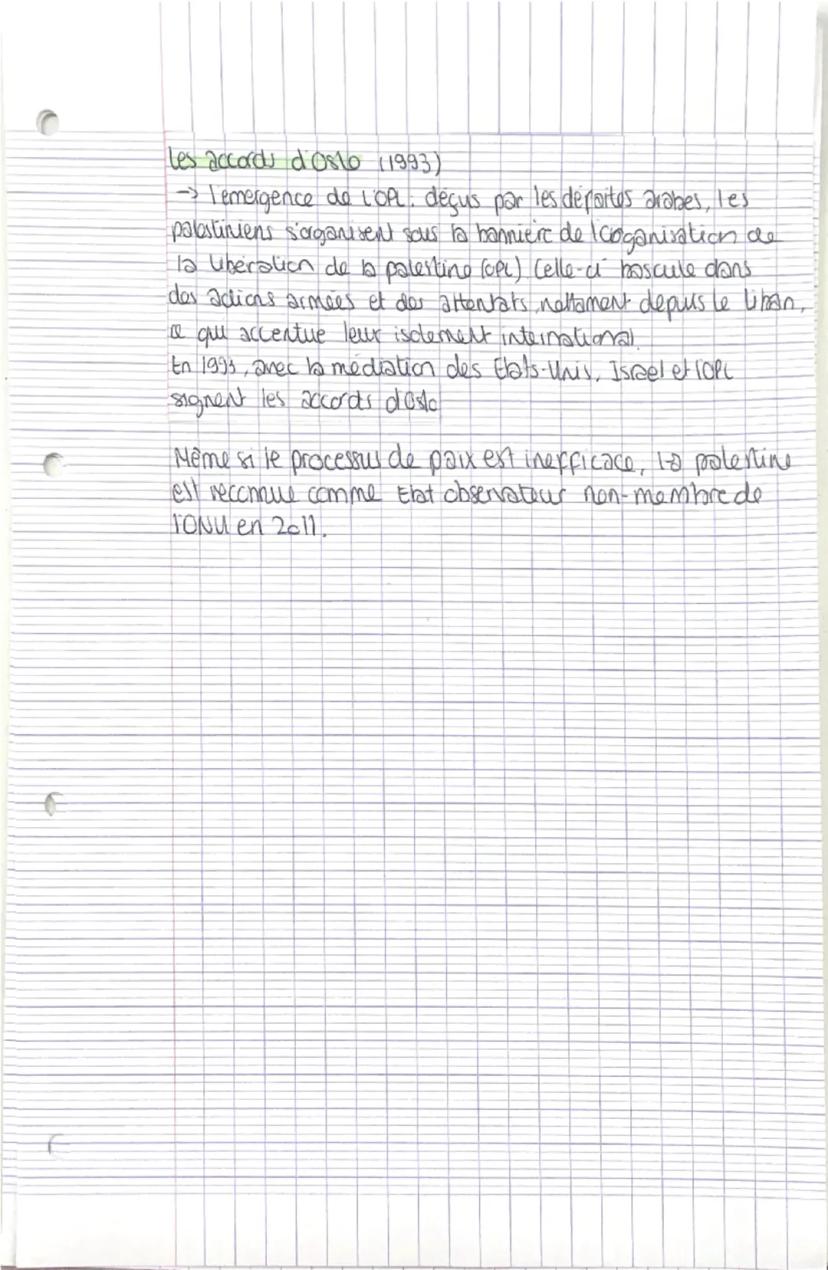 Les accords d'Oslo (1993)
→ l'emergence de l'OPL : déçus par les défaites arabes, les
palestiniens s'organisent sous la bannière de l'(oganisation de
la libération de la palestine (OPL) Celle-ci bascule dans
des actions armées et des attentats, nottament depuis le liban,
ce qui accentue leur isolement international.
En 1993, avec la médiation des Etats-Unis, Israel et l'OPL
signent les accords d'oslo
Même si le processus de paix est inefficace, la palestine
est reconnue comme Etat observateur non-membre de
l'ONU en 2011.